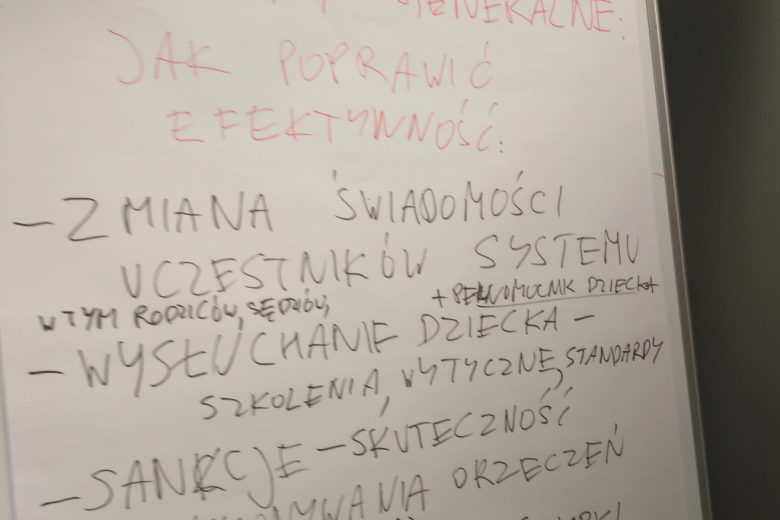 JAK POPRAWIĆ
EFEKTYWNOŚĆ:
– ZMIANA ŚWIADOMOŚCI
UCZESTNIKÓW SYSTEMU
W TYM RODZICÓW, SĘDZIÓW,
+ PEŁNOMOCNIK DZIECKA
– WYSŁUCHANIE DZIECKA –
SZKOLENIA, WYTYCZNE, STANDARDY
– SANKCJE – SKUTECZNOŚĆ
ORZECZEŃ